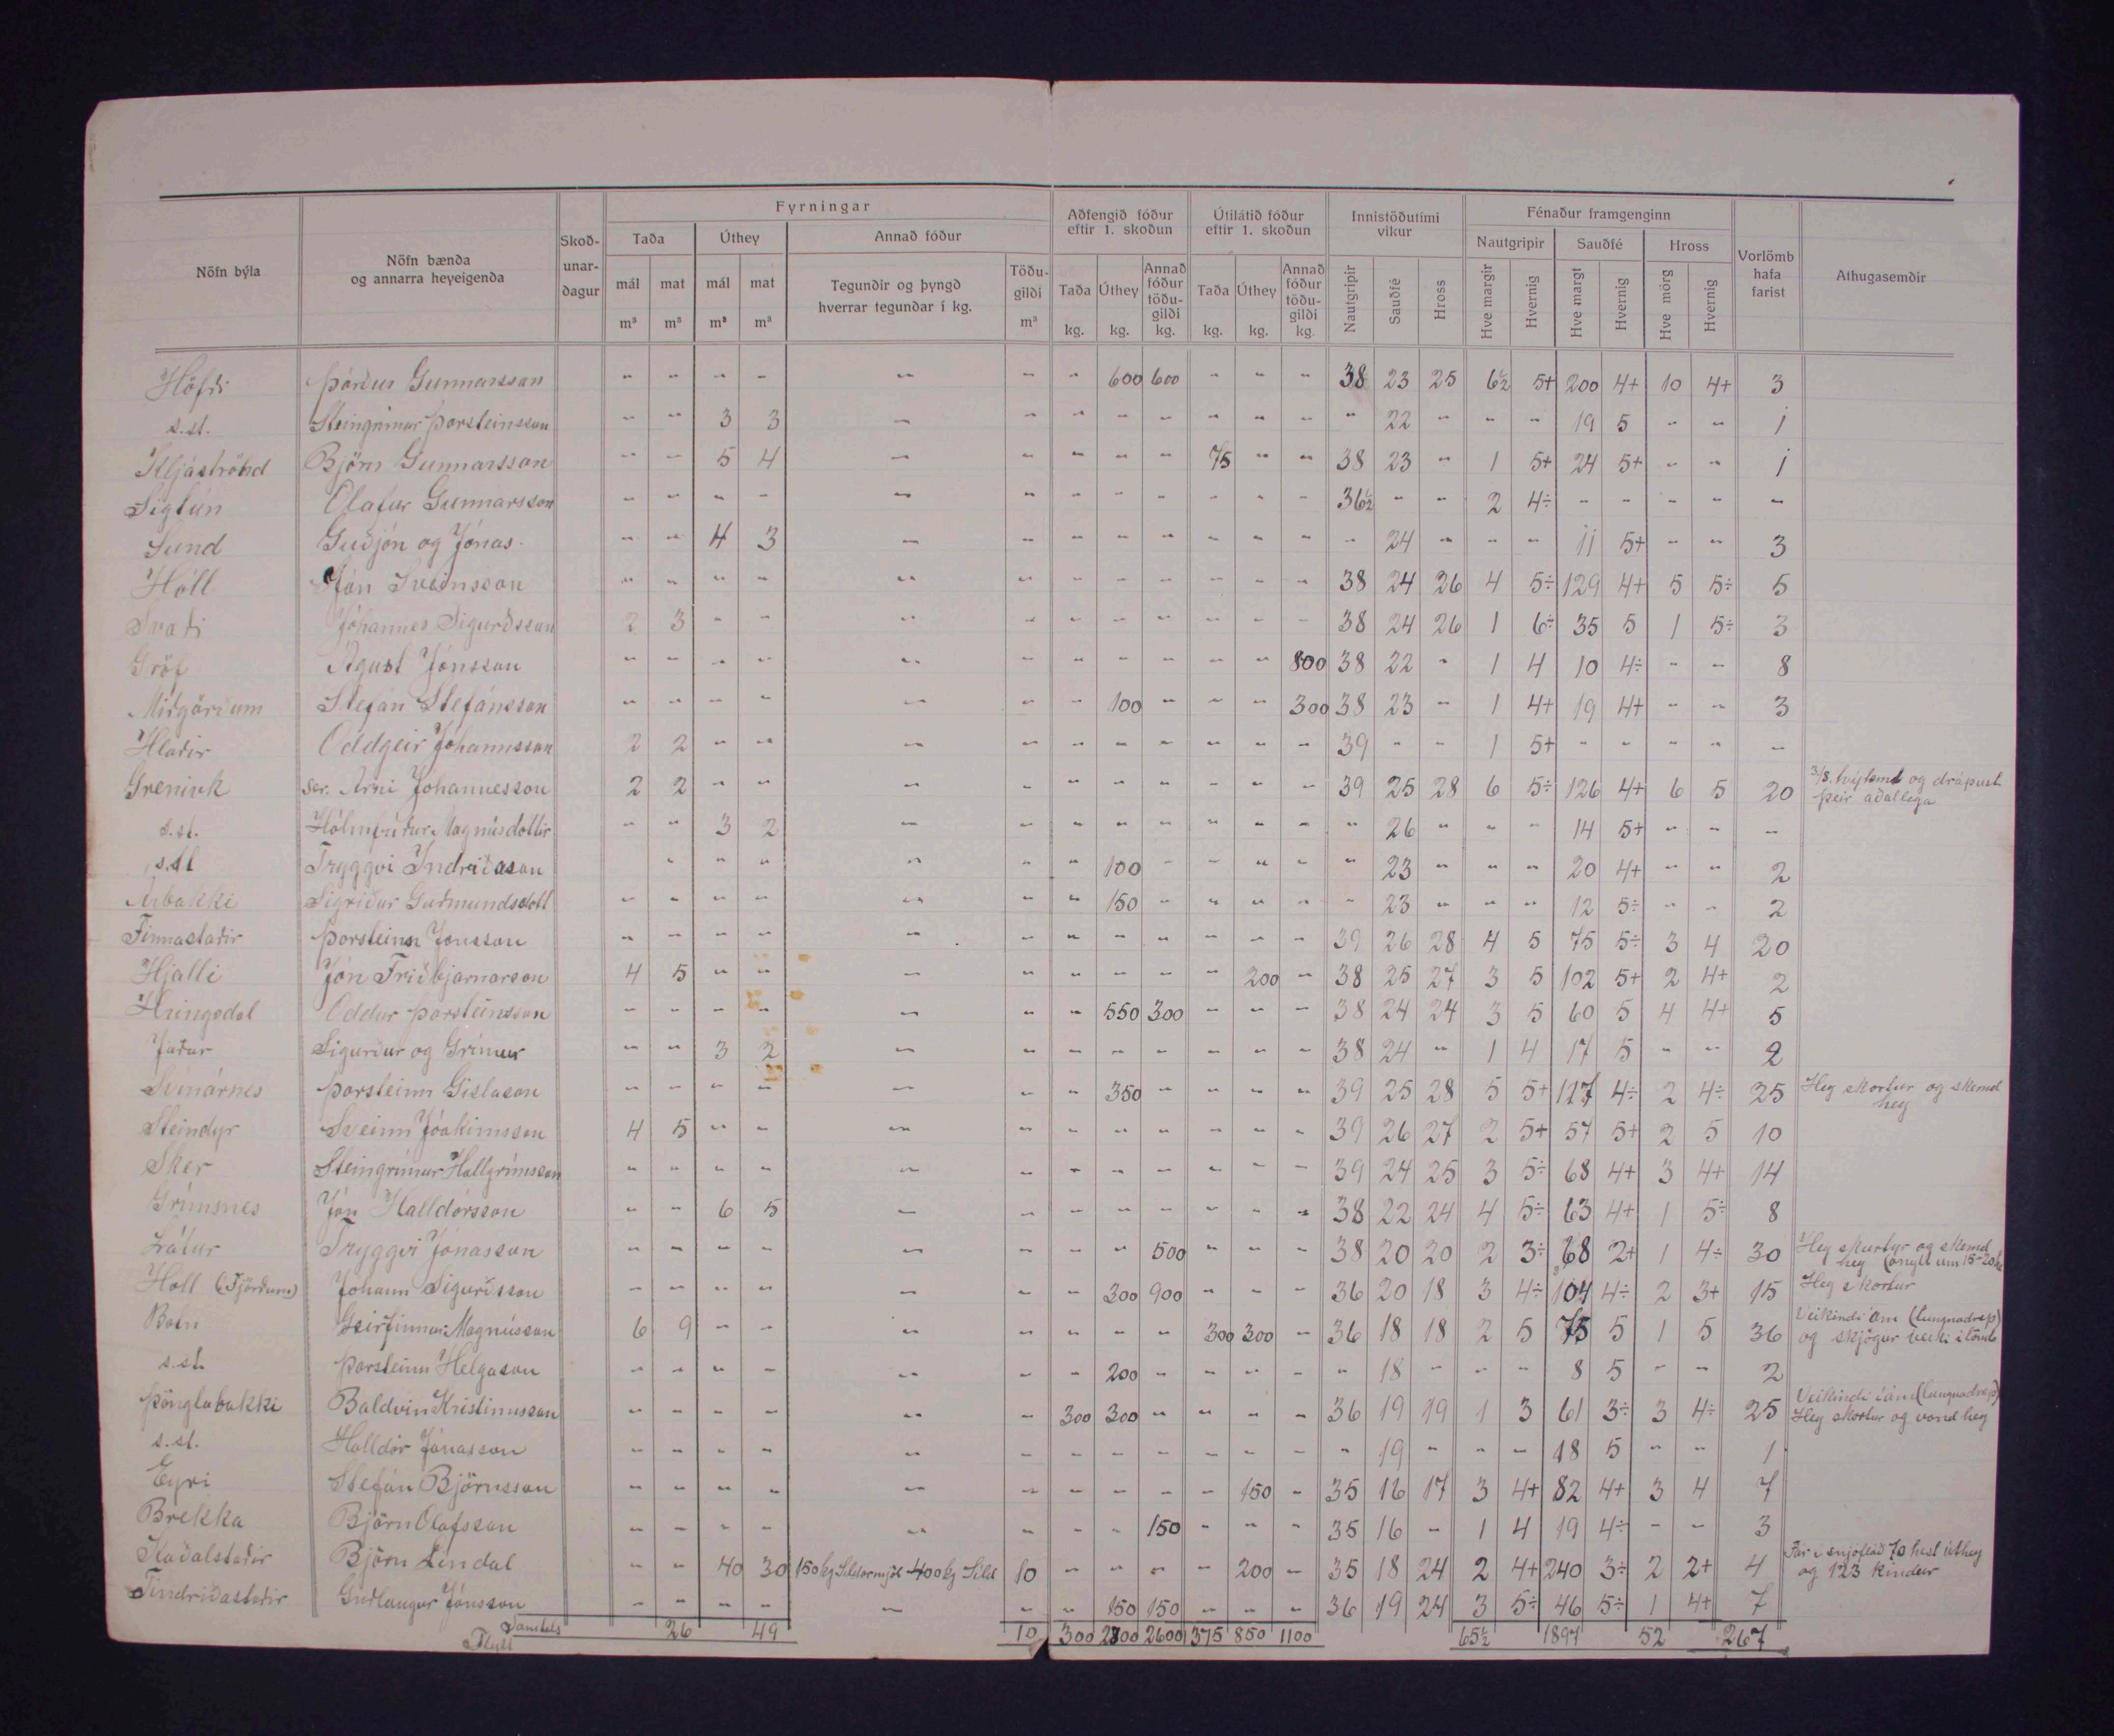 Fyrningar
Aðfengið fóður eftir 1. skoðun
Útilátið fóður eftir 1. skoðun
Innistöðutími vikur
Fénaður framgenginn
Nöfn býla
Nöfn bænda og annarra heyeigenda
Skoð-unar-dagur
Taða
Úthey
Annað fóður
Nautgripir
Sauðfé
Hross
Vorlömb hafa farist
Athugasemdir
mál m³ mat m³ mál m³ mat m³
Tegundir og þyngd hverrar tegundar í kg.
Töðu-gildi m³
Taða kg. Úthey kg. Annað fóður töðu-gildi kg. Taða kg. Úthey kg. Annað fóður töðu-gildi kg.
Nautgripir Sauðfé Hross Hve margir Hvernig Hve margt Hvernig Hve mörg Hvernig
Höfði Þórður Gunnarsson - - - - - - - 600 600 - - - 38 23 25 6½ 5+ 200 4+ 10 4+ 3
s.st. Steingrímur Þorsteinsson - - 3 3 - - - - - - - - - 22 - - - 19 5 - - 1
Kljáströnd Björn Gunnarsson - - 5 4 - - - - - 75 - - 38 23 - 1 5+ 24 5+ - - 1
Sigtún Ólafur Gunnarsson - - - - - - - - - - - - 36½ - - 2 4÷ - - - - -
Sund Guðjón og Jónas - - 4 3 - - - - - - - - - 24 - - - 11 5+ - - 3
Hóll Jón Sveinsson - - - - - - - - - - - - 38 24 26 4 5÷ 129 4+ 5 5÷ 5
Svæði Jóhannes Sigurðsson 2 3 - - - - - - - - - - 38 24 26 1 6÷ 35 5 1 5÷ 3
Gröf Ágúst Jónsson - - - - - - - - - - - 800 38 22 - 1 4 10 4÷ - - 8
Miðgörðum Stefán Stefánsson - - - - - - - 100 - - - 300 38 23 - 1 4+ 19 4+ - - 3
Hlaðir Oddgeir Jóhannsson 2 2 - - - - - - - - - - 39 - - 1 5+ - - - - -
Grenivík Ser. Árni Jóhannesson 2 2 - - - - - - - - - - 39 25 28 6 5÷ 126 4+ 6 5 20 3/8. tvílemt og drápust þeir aðallega
s.st. Hólmfríður Magnúsdóttir - - 3 2 - - - - - - - - - 26 - - - 14 5+ - - -
s.st Tryggvi Indriðason - - - - - - 100 - - - - - 23 - - - 20 4+ - - 2
Árbakki Sigríður Guðmundsdótt - - - - - - - 150 - - - - - 23 - - - 12 5÷ - - 2
Finnastaðir Þorsteinn Jónsson - - - - - - - - - - - - 39 26 28 4 5 75 5÷ 3 4 20
Hjalli Jón Friðbjarnarson 4 5 - - - - - - - - 200 - 38 25 27 3 5 102 5+ 2 4+ 2
Hringsdal Oddur Þorsteinsson - - - - - - - 550 300 - - - 38 24 24 3 5 60 5 4 4+ 5
Jaðar Sigurður og Grímur - - 3 2 - - - - - - - - 38 24 - 1 4 17 5 - - 2
Svínárnes Þorsteinn Gíslason - - - - - - - 350 - - - - 39 25 28 5 5+ 117 4÷ 2 4÷ 25 Hey skortur og skemd hey
Steindyr Sveinn Jóakimsson 4 5 - - - - - - - - - - 39 26 27 2 5+ 57 5+ 2 5 10
Sker Steingrímur Hallgrímsson - - - - - - - - - - - - 39 24 25 3 5÷ 68 4+ 3 4+ 14
Grímsnes Jón Halldórsson - - 6 5 - - - - - - - - 38 22 24 4 5÷ 63 4+ 1 5÷ 8
Látur Tryggvi Jónasson - - - - - - - - 500 - - - 38 20 20 2 3÷ 68 2+ 1 4÷ 30 Hey skortur og skemd hey (ónýtt um 15-20
Hóll (Fjörðum) Jóhann Sigurðsson - - - - - - - 300 900 - - - 36 20 18 3 4÷ 104 4÷ 2 3+ 15 Hey skortur
Botn Geirfinnur Magnússon 6 9 - - - - - - - 300 300 - 36 18 18 2 5 75 5 1 5 36 Veikindi ám (lungnadrep) og skjögur veiki í lömb
s.st. Þorsteinn Helgason - - - - - - - 200 - - - - - 18 - - - 8 5 - - 2
Þönglabakki Baldvin Kristinnsson - - - - - - 300 300 - - - - 36 19 19 1 3 61 3÷ 3 4÷ 25 Veikindi í ám (lungnadrep) Hey skortur og vond hey
s.st. Halldór Jónasson - - - - - - - - - - - - - 19 - - - 18 5 - - 1
Eyri Stefán Björnsson - - - - - - - - - - 150 - 35 16 17 3 4+ 82 4+ 3 4 7
Brekka Björn Ólafsson - - - - - - - - 150 - - - 35 16 - 1 4 19 4÷ - - 3
Kaðalstaðir Björn Líndal - - 40 30 150 kg Síldarmjöl 400 kg Síld 10 - - - - 200 - 35 18 24 2 4+ 240 3÷ 2 2+ 4 Fór í snjóflóð 70 hest úthey og 123 kindur
Tindriðastaðir Guðlaugur Jónsson - - - - - - - 150 150 - - - 36 19 24 3 5÷ 46 5÷ 1 4+ 7
Samtals 26 49 10 300 2800 2600 375 850 1100 65½ 1897 52 267
Flytt